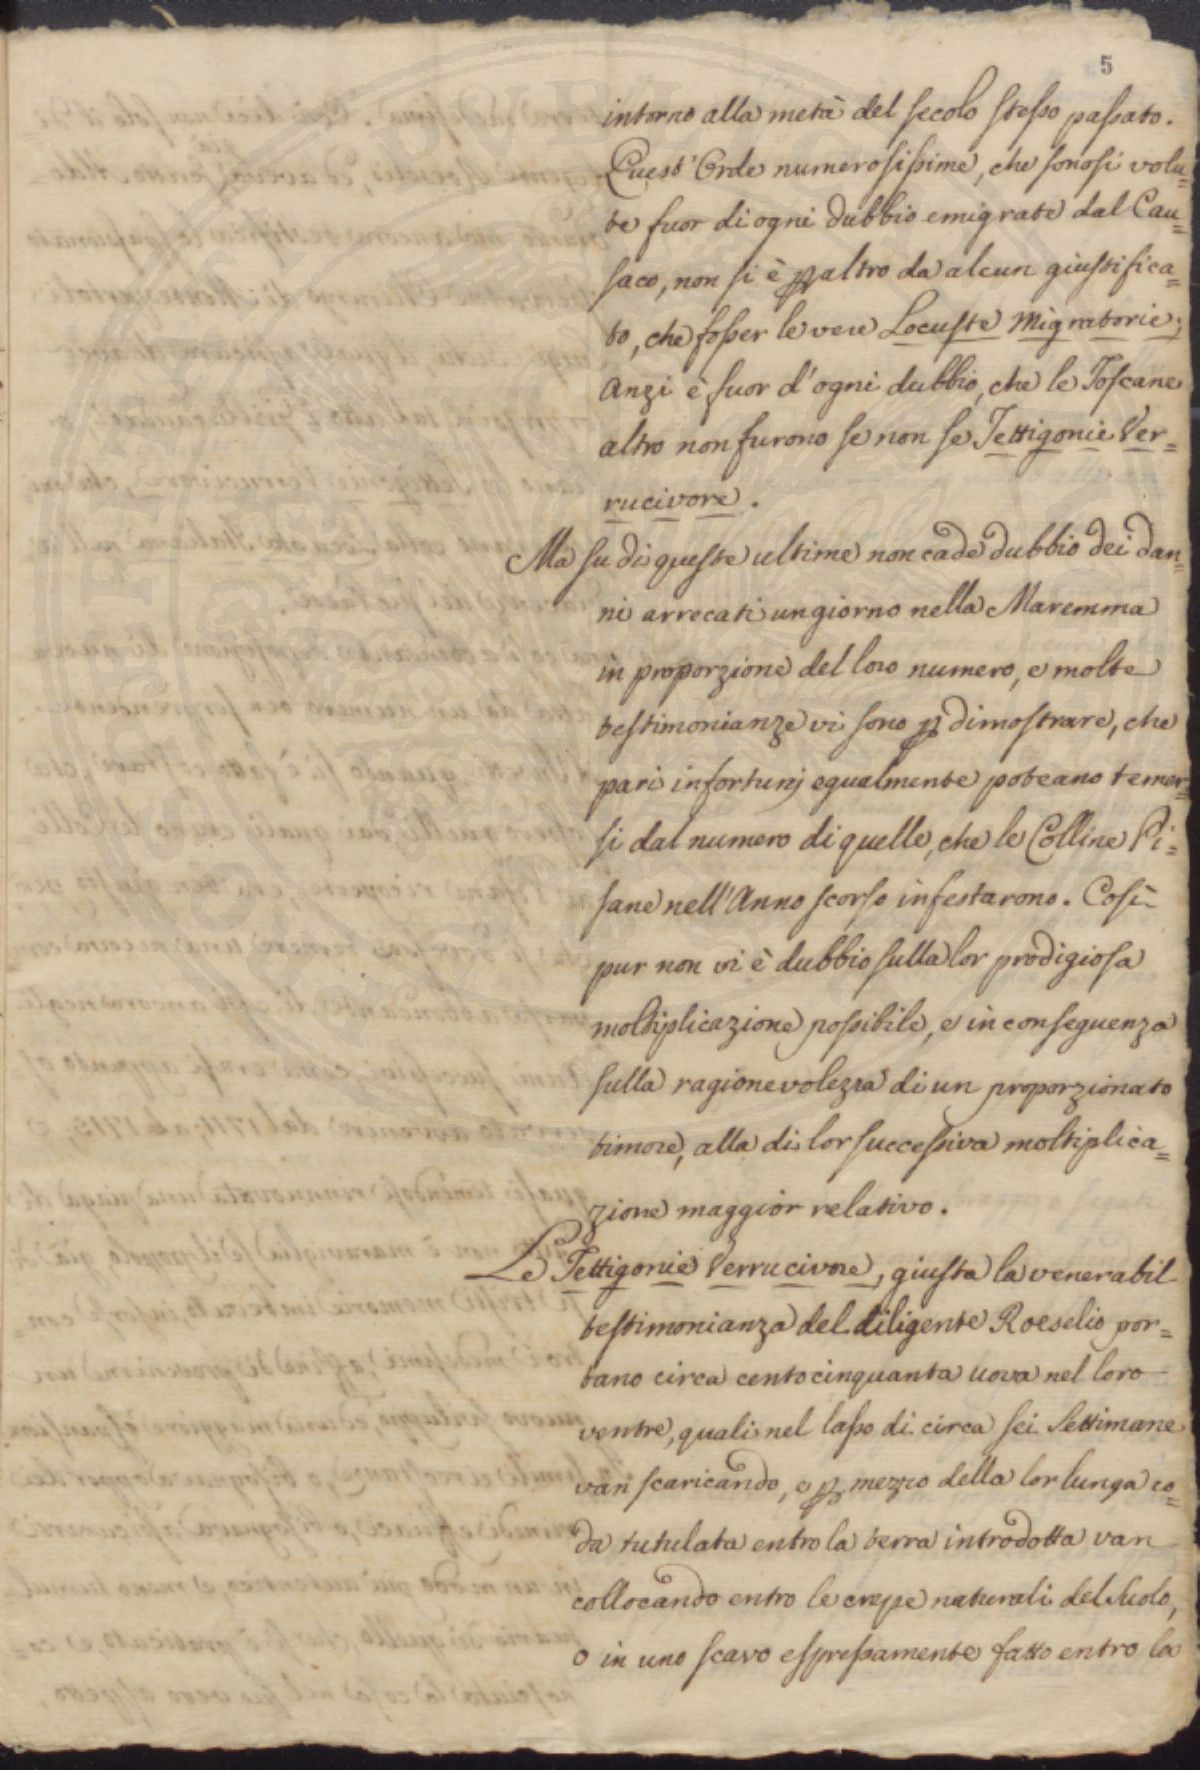 5
intorno alla metà del secolo stesso passato.
Quest'Orde numerosissime, che sonosi volu=
te fuor di ogni dubbio emigrate dal Cau=
saco, non si è ꝑ altro da alcun giustifica=
to, che fosser le vere Locuste Migratorie;
Anzi è fuor d'ogni dubbio, che le Toscane
altro non furono se non se Tettigonie Ver=
rucivore.
Ma su di queste ultime non cade dubbio dei dan=
ni arrecati un giorno nella Maremma
in proporzione del loro numero, e molte
testimonianze vi sono ꝑ dimostrare, che
pari infortunj egualmente poteano temer=
si dal numero di quelle, che le Colline Pi=
sane nell'Anno scorso infestarono. Così
pur non vi è dubbio sulla lor prodigiosa
moltiplicazione possibile, e in conseguenza
sulla ragionevolezza di un proporzionato
timore, alla di lor successiva moltiplica=
zione maggior relativo.
Le Tettigonie Verrucivore, giusta la venerabil
testimonianza del diligente Roeselio por=
tano circa centocinquanta uova nel loro
ventre, quali nel lasso di circa sei Settimane
van scaricando, e ꝑ mezzo della lor lunga co=
da tutulata entro la terra introdotta van
collocando entro le crepe naturali del Suolo,
o in uno scavo espressamente fatto entro la